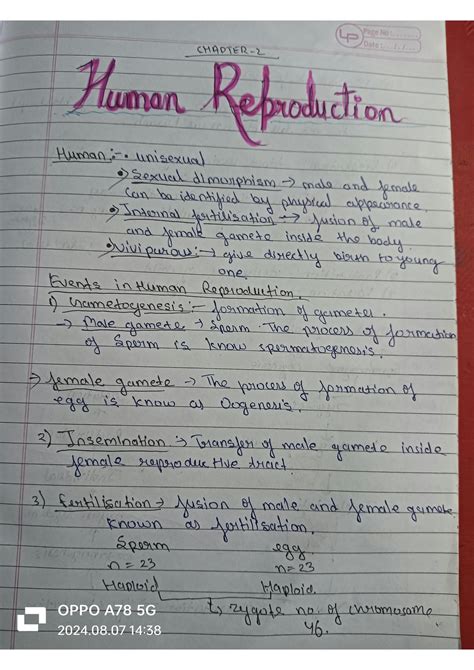 LP Page No:
Date:
CHAPTER-2
Human Reproduction
Human:- • unisexual
• Sexual dimorphism → male and female
can be identified by physical appearance.
• Internal fertilisation → fusion of male
and female gamete inside the body.
• Viviparous:→ give directly birth to young
one.
Events in Human Reproduction
1) Gametogenesis:- formation of gametes.
→ Male gamete → Sperm. The process of formation
of Sperm is know spermatogenesis.
→ female gamete → The process of formation of
egg is know as Oogenesis.
2) Insemination → Transfer of male gamete inside
female reproductive tract.
3) fertilisation → fusion of male and female gamete
known as fertilisation.
Sperm egg
n=23 n=23
Haploid Haploid.
↳ zygote no. of chromosome
46.
OPPO A78 5G
2024.08.07 14:38